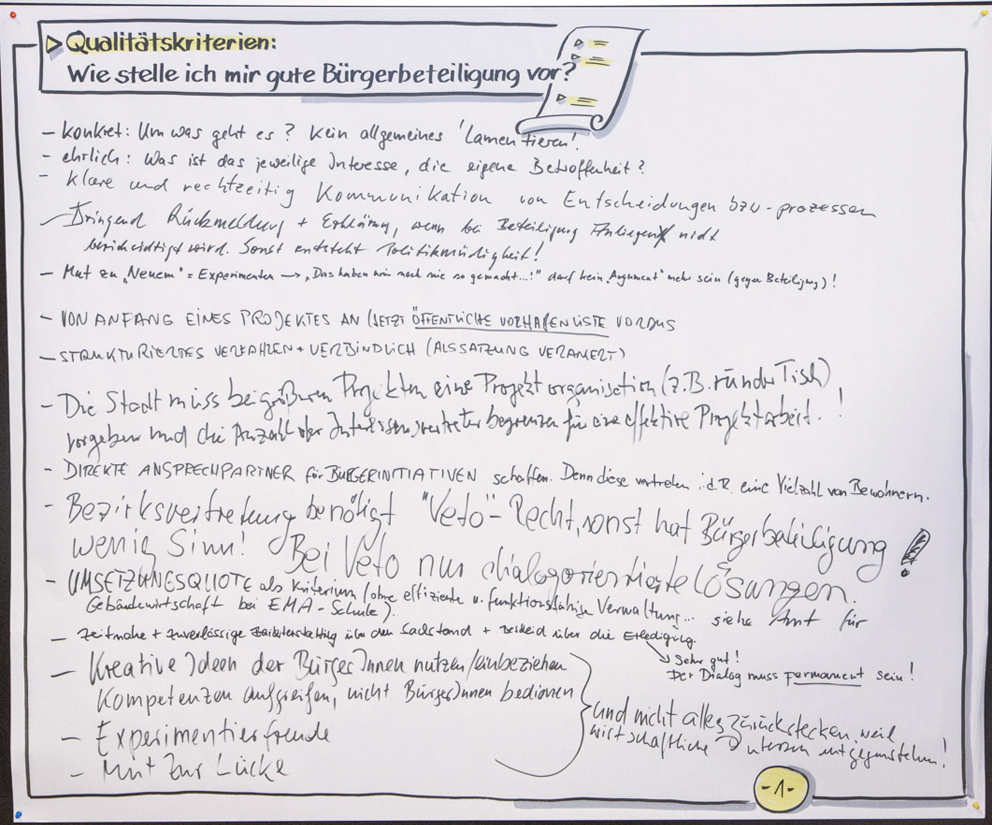 Qualitätskriterien:
Wie stelle ich mir gute Bürgerbeteiligung vor?
– konkret: Um was geht es? Kein allgemeines 'Lamentieren'.
– ehrlich: Was ist das jeweilige Interesse, die eigene Betroffenheit?
– Klare und rechtzeitig Kommunikation von Entscheidungen bzw -prozessen
– Dringend Rückmeldung + Erklärung, wenn bei Beteiligung Anliegen nicht
berücksichtigt wird. Sonst entsteht Politikmüdigkeit!
– Mut zu „Neuem" = Experimenten → „Das haben wir noch nie so gemacht...!" darf kein „Argument" mehr sein (gegen Beteiligung)!
– VON ANFANG EINES PROJEKTES AN (SETZT ÖFFENTLICHE VORHABENLISTE VORAUS
– STRUKTURIERTES VERFAHREN + VERBINDLICH (ALS SATZUNG VERANKERT)
– Die Stadt muss bei größeren Projekten eine Projektorganisation (z.B. runder Tisch)
vorgeben und die Anzahl der Interessensvertreter begrenzen für eine effektive Projektarbeit. !
– DIREKTE ANSPRECHPARTNER für BÜRGERINITIATIVEN schaffen. Denn diese vertreten i.d.R. eine Vielzahl von Bewohnern.
– Bezirksvertretung benötigt "Veto"-Recht, sonst hat Bürgerbeteiligung
wenig Sinn! Bei Veto nur dialogorientierte Lösungen. !
– UMSETZUNGSQUOTE als Kriterium (ohne effiziente u. funktionsfähige Verwaltung... siehe Amt für
Gebäudewirtschaft bei EMA-Schule).
– zeitnahe + zuverlässige über den Sachstand + Bescheid über die Erledigung.
→ Sehr gut!
Der Dialog muss permanent sein!
– Kreative Ideen der BürgerInnen nutzen/einbeziehen
Kompetenzen aufgreifen, nicht BürgerInnen bedienen
und nicht alles zurückstecken, weil
wirtschaftliche Interessen entgegenstehen!
– Experimentierfreude
– Mut zur Lücke
-1-